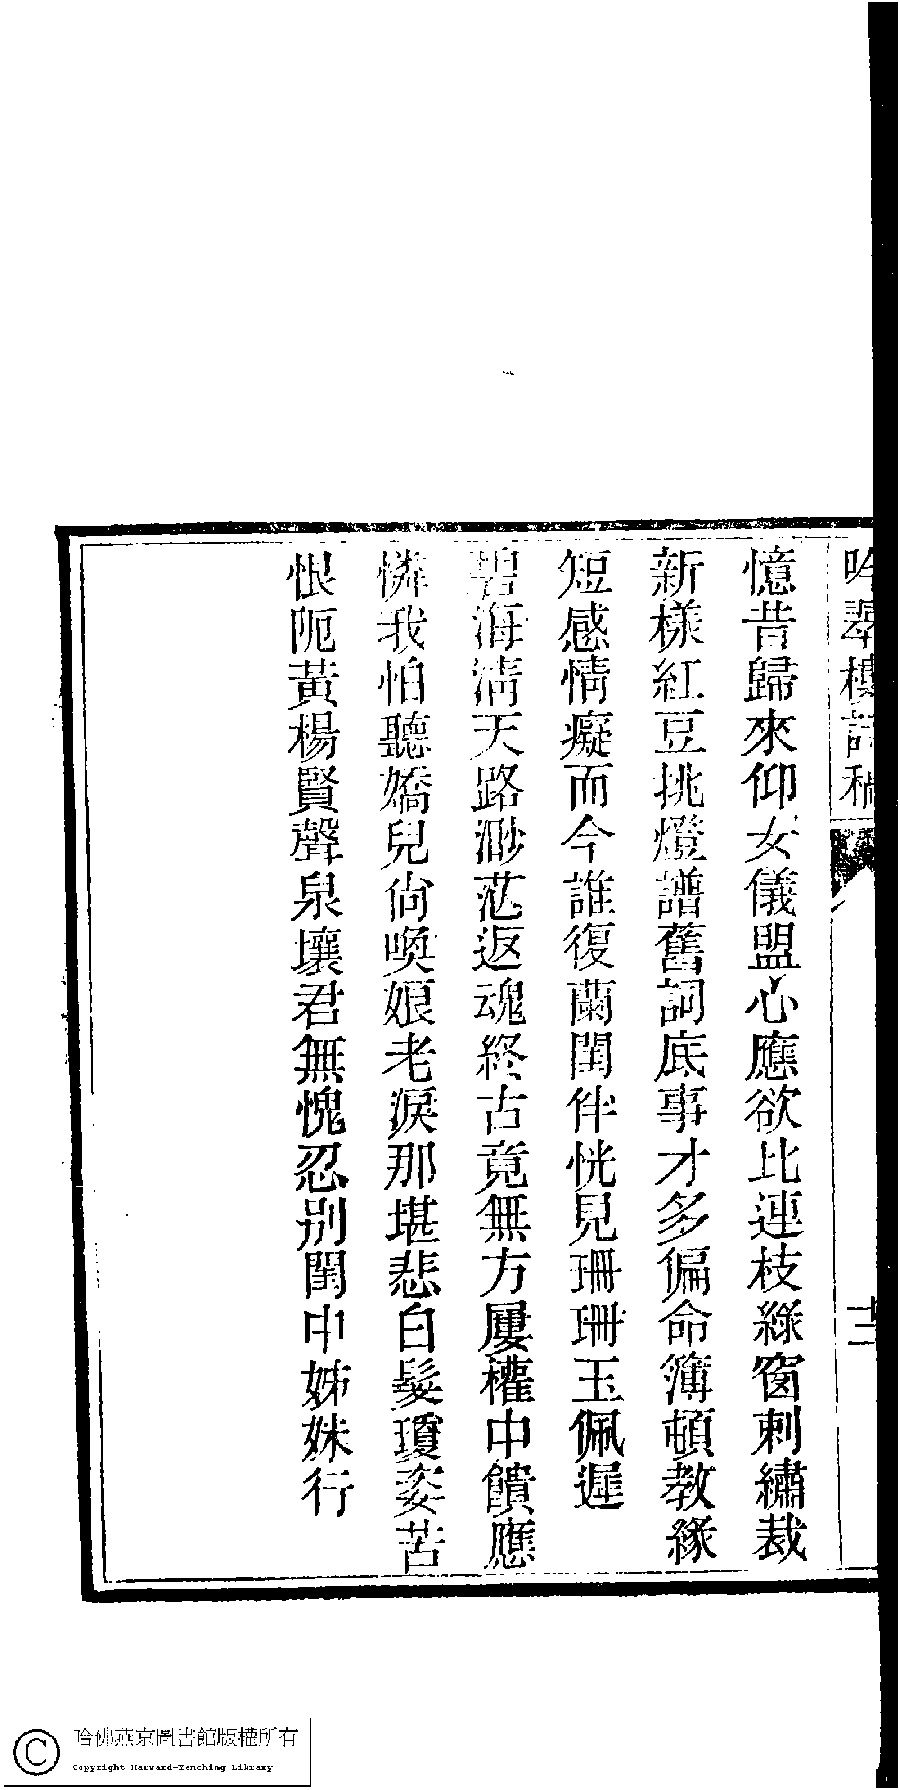 吟翠樓詩稿
十二
憶昔歸來仰女儀盟心應欲比連枝綠窗刺繡裁
新樣紅豆挑燈譜舊詞底事才多偏命簿頓教緣
短感情癡而今誰復蘭閨伴恍見珊珊玉佩遲
碧海淸天路渺茫返魂終古竟無方屢權中饋應
憐我怕聽嬌兒尙喚娘老淚那堪悲白髮瓊姿苦
恨阨黃楊賢聲泉壤君無愧忍别閨中姊妹行
哈佛燕京圖書館版權所有
Copyright Harvard-Yenching Library